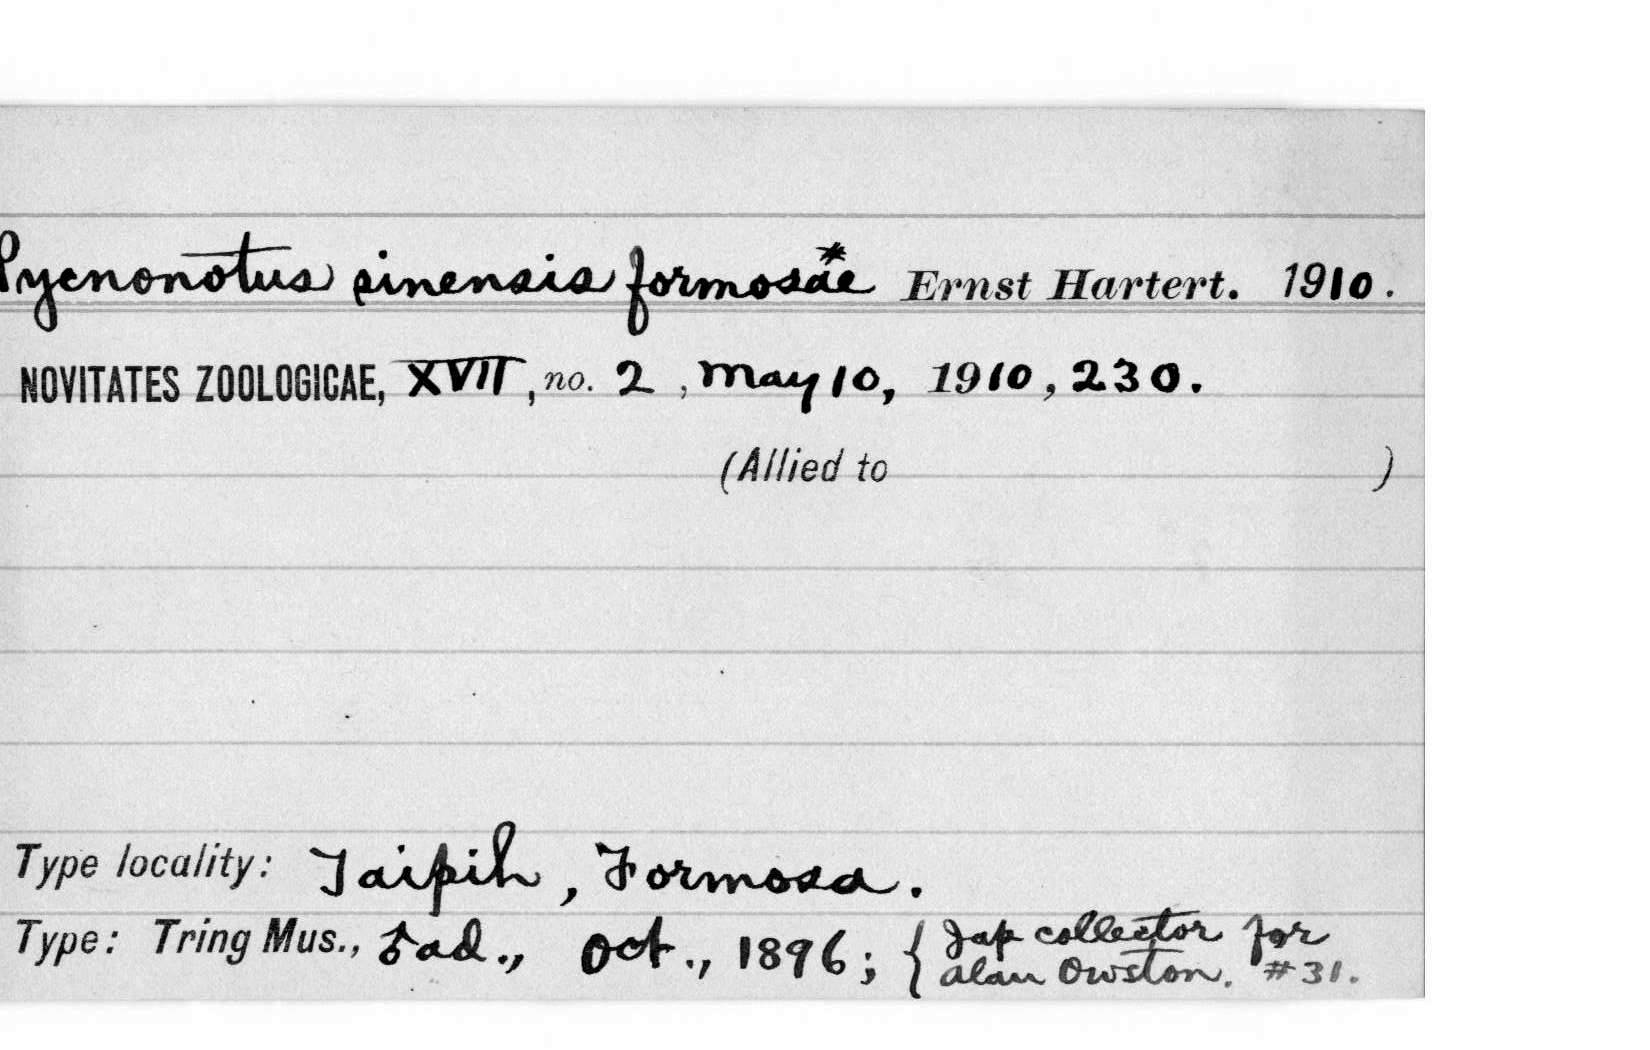 Pycnonotus sinensis formosae* Ernst Hartert. 1910.
NOVITATES ZOOLOGICAE, XVII, no. 2, May 10, 1910, 230.
(Allied to )
Type locality: Taipih, Formosa.
Type: Tring Mus., ♂ ad., Oct., 1896; { Jap collector for
Alan Owston. #31.